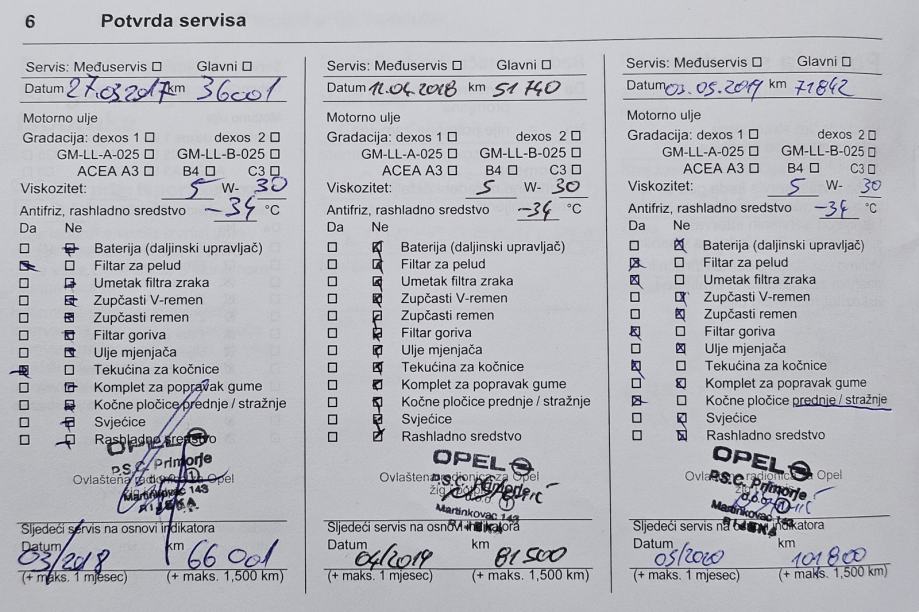 6 Potvrda servisa
Servis: Međuservis ☐ Glavni ☐
Datum 27.03.2017 km 36001
Motorno ulje
Gradacija: dexos 1 ☐ dexos 2 ☐
GM-LL-A-025 ☐ GM-LL-B-025 ☐
ACEA A3 ☐ B4 ☐ C3 ☐
Viskozitet: 5 W- 30
Antifriz, rashladno sredstvo -34 °C
Da Ne
☐ ☒ Baterija (daljinski upravljač)
☒ ☐ Filtar za pelud
☐ ☒ Umetak filtra zraka
☐ ☒ Zupčasti V-remen
☐ ☒ Zupčasti remen
☐ ☒ Filtar goriva
☐ ☒ Ulje mjenjača
☒ ☐ Tekućina za kočnice
☐ ☒ Komplet za popravak gume
☐ ☒ Kočne pločice prednje / stražnje
☐ ☒ Svjećice
☐ ☒ Rashladno sredstvo
OPEL
P.S.C. Primorje
Ovlaštena radionica za Opel
Martinkovac 143
RIJEKA
Sljedeći servis na osnovi indikatora
Datum km
03/2018 66 001
(+ maks. 1 mjesec) (+ maks. 1,500 km)
Servis: Međuservis ☐ Glavni ☐
Datum 11.04.2018 km 51 740
Motorno ulje
Gradacija: dexos 1 ☐ dexos 2 ☐
GM-LL-A-025 ☐ GM-LL-B-025 ☐
ACEA A3 ☐ B4 ☐ C3 ☐
Viskozitet: 5 W- 30
Antifriz, rashladno sredstvo -34 °C
Da Ne
☐ ☒ Baterija (daljinski upravljač)
☐ ☒ Filtar za pelud
☐ ☒ Umetak filtra zraka
☐ ☒ Zupčasti V-remen
☐ ☒ Zupčasti remen
☐ ☒ Filtar goriva
☐ ☒ Ulje mjenjača
☐ ☒ Tekućina za kočnice
☐ ☒ Komplet za popravak gume
☐ ☒ Kočne pločice prednje / stražnje
☐ ☒ Svjećice
☐ ☒ Rashladno sredstvo
OPEL
Ovlaštena radionica za Opel
P.S.C.
žig i
d.o.o.
Martinkovac 143
Sljedeći servis na osnovi indikatora
Datum km
04/2019 81 500
(+ maks. 1 mjesec) (+ maks. 1,500 km)
Servis: Međuservis ☐ Glavni ☐
Datum 03.05.2019 km 71842
Motorno ulje
Gradacija: dexos 1 ☐ dexos 2 ☐
GM-LL-A-025 ☐ GM-LL-B-025 ☐
ACEA A3 ☐ B4 ☐ C3 ☐
Viskozitet: 5 W- 30
Antifriz, rashladno sredstvo -34 °C
Da Ne
☐ ☒ Baterija (daljinski upravljač)
☒ ☐ Filtar za pelud
☒ ☐ Umetak filtra zraka
☐ ☒ Zupčasti V-remen
☐ ☒ Zupčasti remen
☒ ☐ Filtar goriva
☐ ☒ Ulje mjenjača
☒ ☐ Tekućina za kočnice
☐ ☒ Komplet za popravak gume
☒ ☐ Kočne pločice prednje / stražnje
☐ ☒ Svjećice
☐ ☒ Rashladno sredstvo
OPEL
Ovlaštena radionica za Opel
P.S.C. Primorje
d.o.o.
Martinkovac 143
RIJEKA
Sljedeći servis na osnovi indikatora
Datum km
05/2020 101 800
(+ maks. 1 mjesec) (+ maks. 1,500 km)